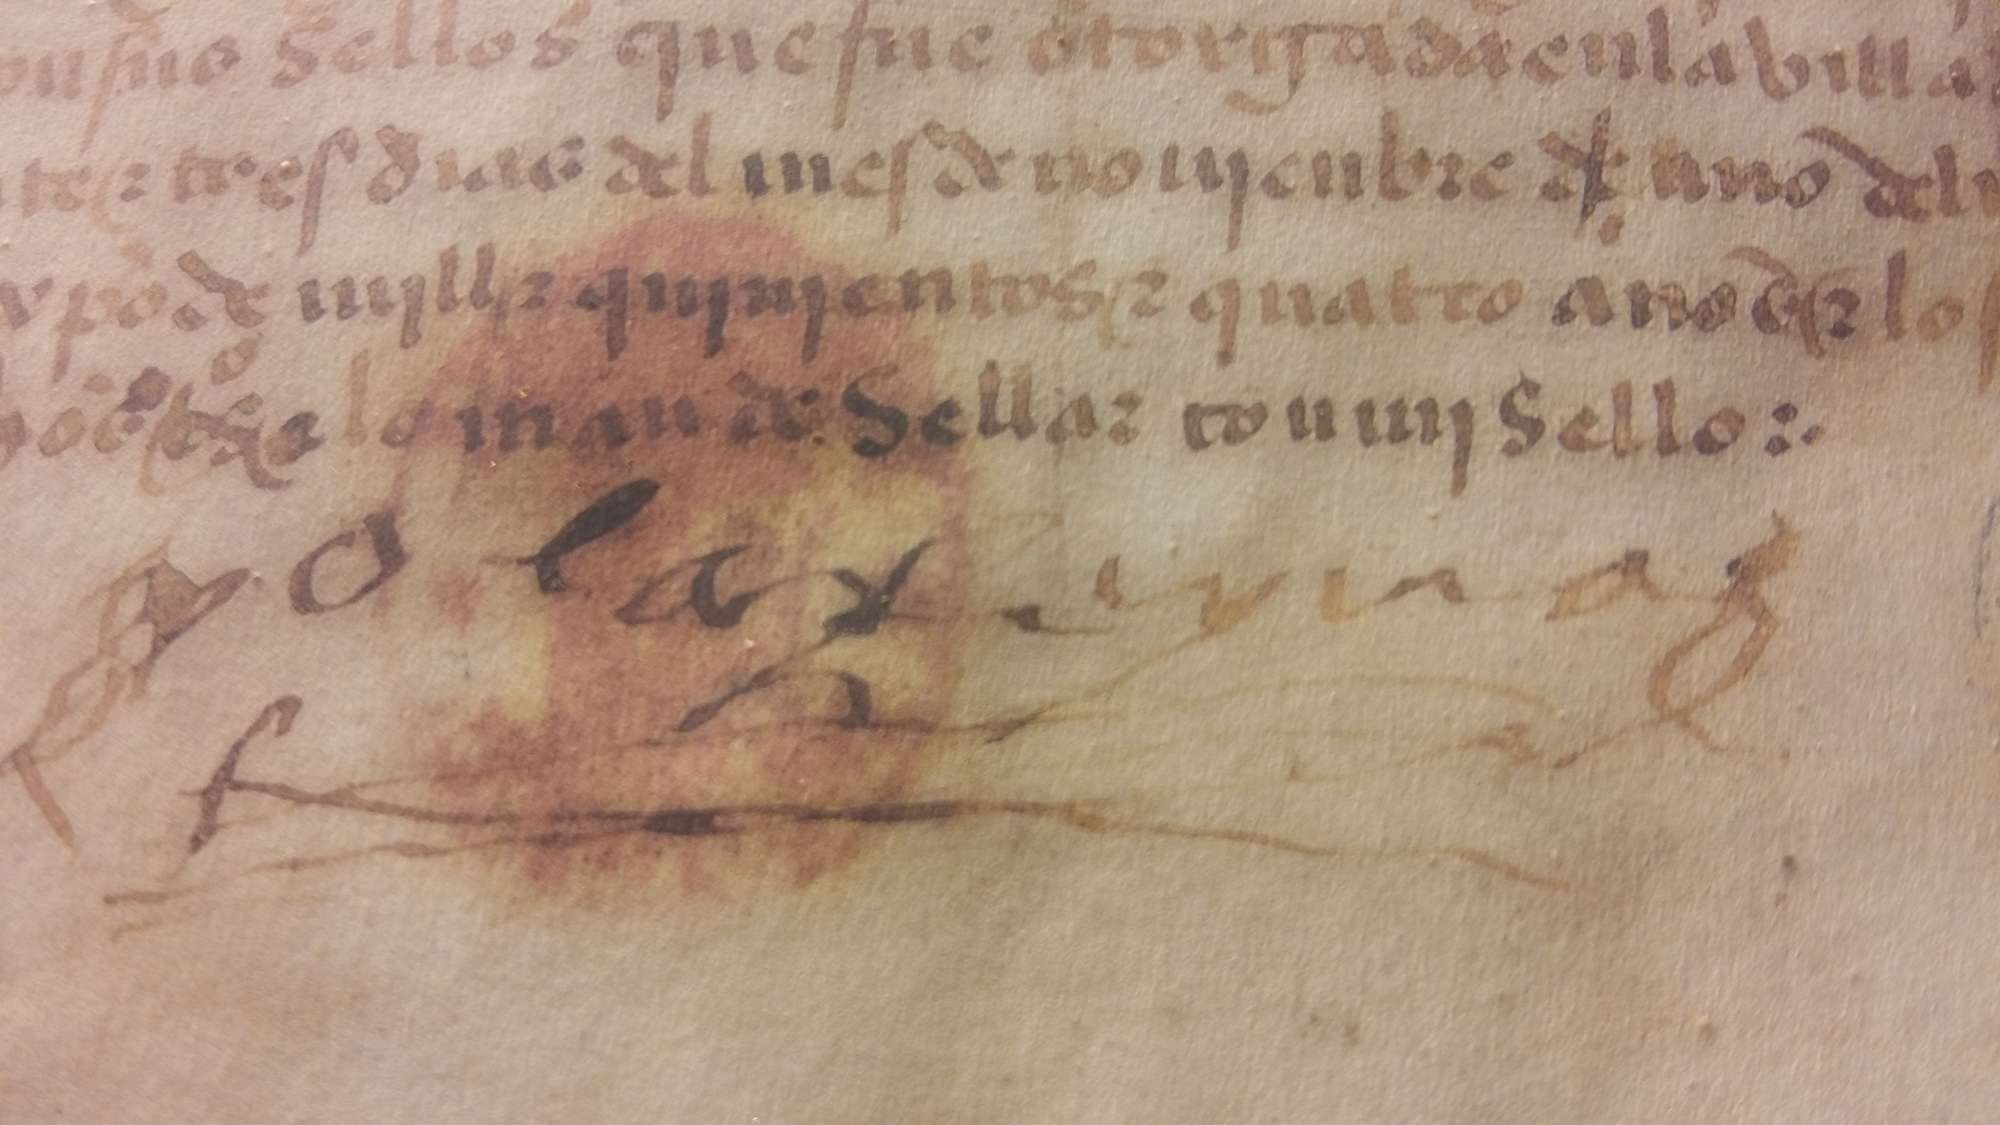 su sello que fue otorgada en la villa
te e tres dias del mes de novienbre del año del
xpo de mill e quinientos e quatro años e los
lo mande sellar con mi sello
yo la reyna